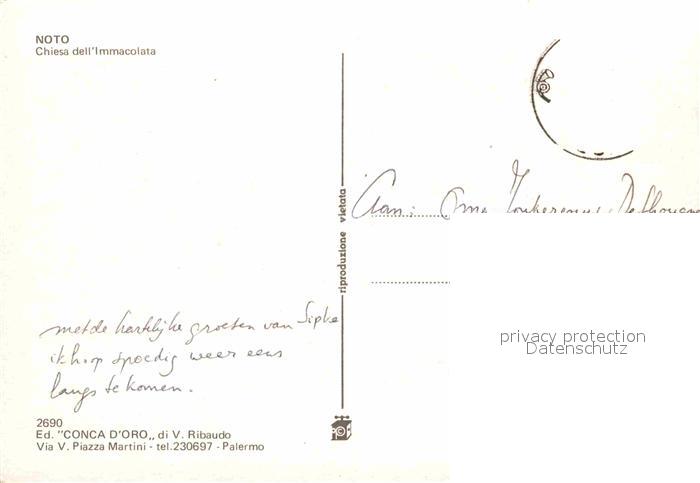 NOTO
Chiesa dell'Immacolata
riproduzione vietata
Aan: Oma
met de hartelijke groeten van Sipke
ik hoop spoedig weer eens
langs te komen.
privacy protection
Datenschutz
2690
Ed. "CONCA D'ORO,, di V. Ribaudo
Via V. Piazza Martini - tel.230697 - Palermo